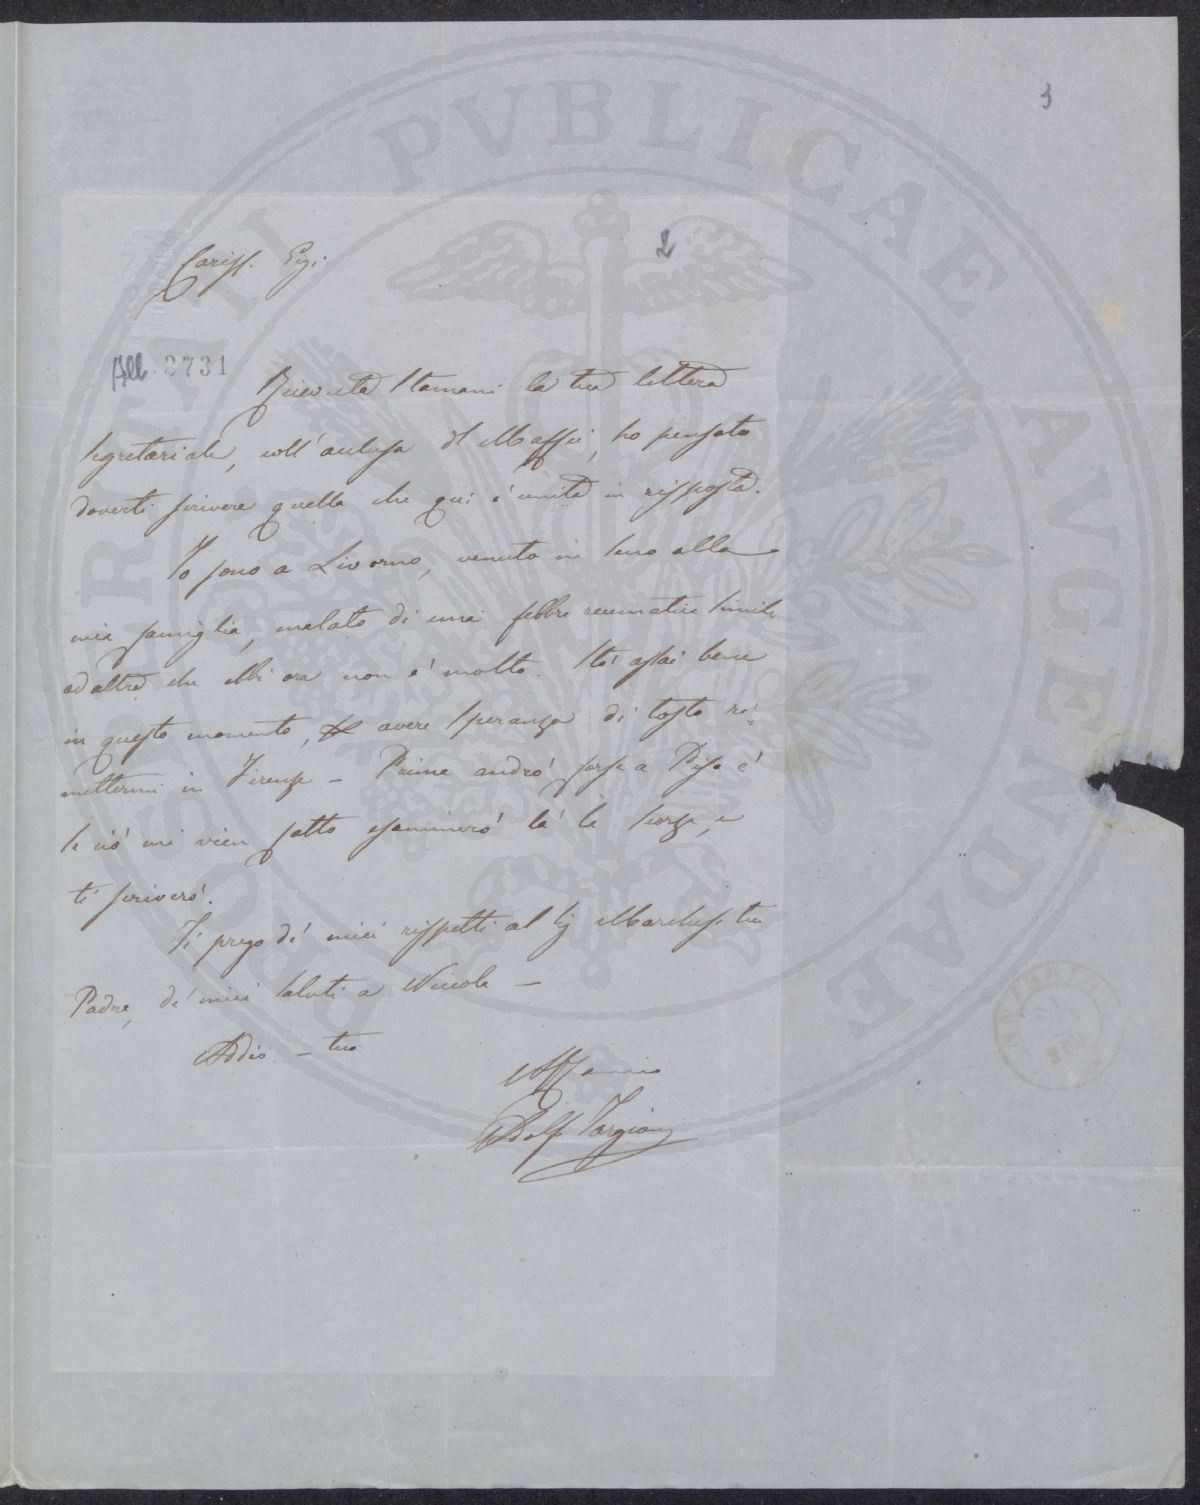 3
2
Cariss. Gigi
All. 3731
Ricevuta stamani la tua lettera
segretariale, coll'acclusa di Maffei, ho pensato
doverti scrivere quella che qui è unita in risposta.
Io sono a Livorno, venuto in seno alla
mia famiglia, malato di una febbre reumatica simile
ad altra che ebbi ora non è molto. Stò assai bene
in questo momento, da avere speranza di tosto ri=
mettermi in Firenze – Prima andrò forse a Pisa è
se ciò mi vien fatto esaminerò là le, e
ti scriverò.
Ti prego de' miei rispetti al Sig Marchese tuo
Padre, de' miei saluti a Niccola –
Addio – tuo
Aff amico
Adolfo Targioni
SCRIPTORUM PUBLICAE AUGENDAE